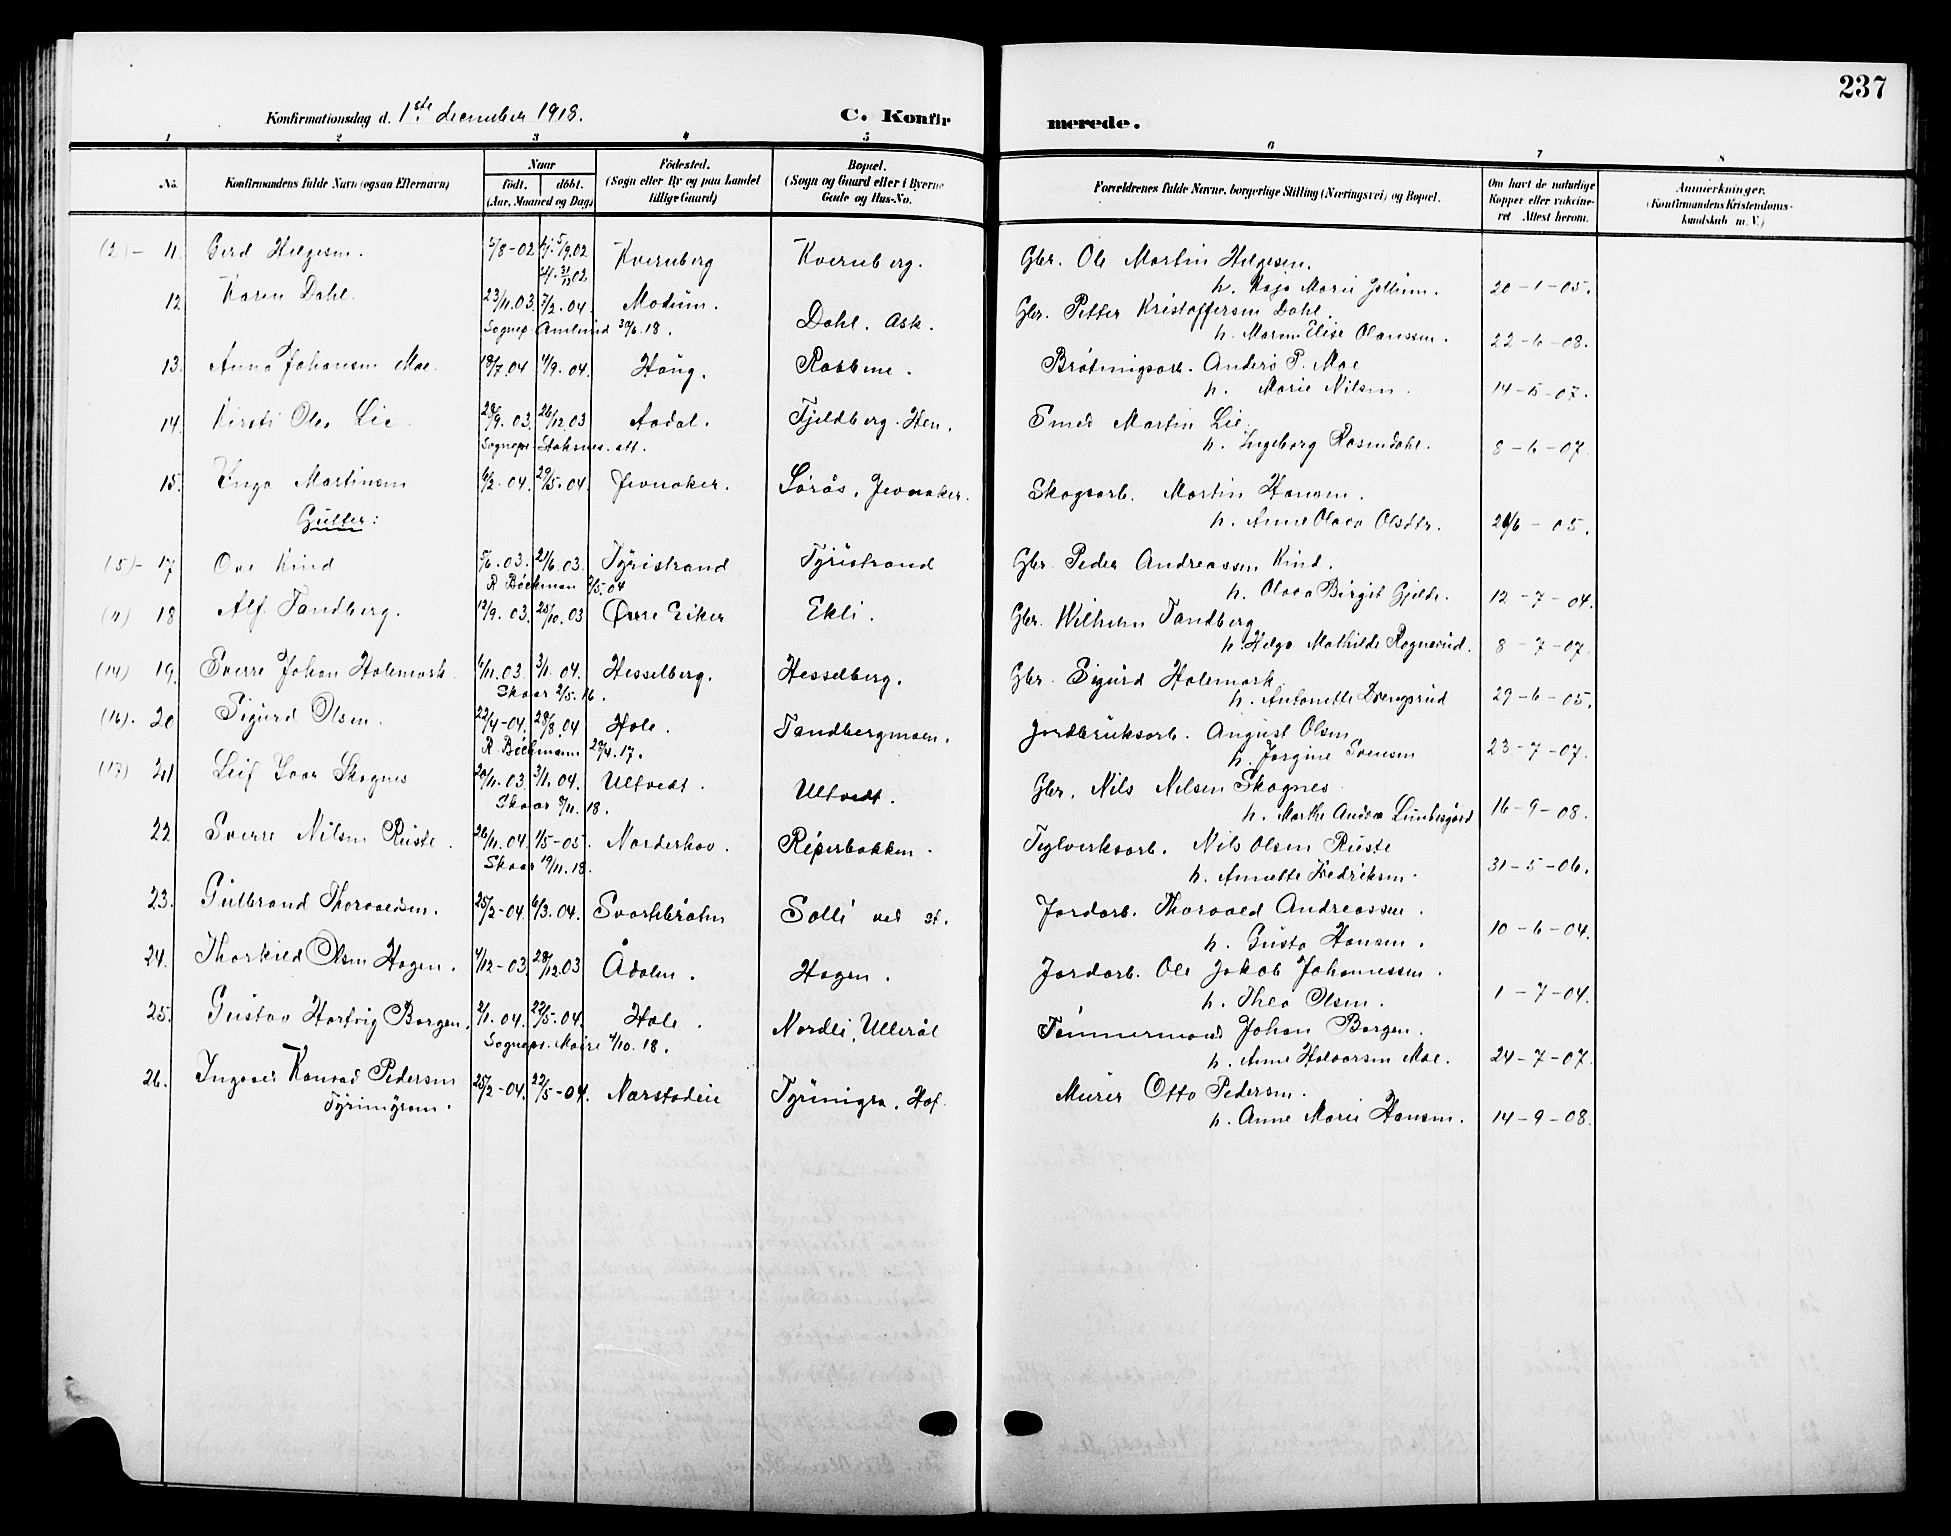 237
Konfirmationsdag d. 1ste december 1918. C. Konfir merede.
1 2 3 4 5 6 7 8
No. Konfirmandens fulde Navn (ogsaa Efternavn) Naar födt. döbt. (Aar, Maaned og Dag) Födested. (Sogn eller By og paa Landet tillige Gaard) Bopæl. (Sogn og Gaard eller i Byerne Gade og Hus-No. Forældrenes fulde Navne, borgerlige Stilling (Næringsvei) og Bopæl. Om havt de naturlige Kopper eller vakcineret Attest herom. Anmerkninger. (Konfirmandens Kristendomskundskab m. V.)
(2) - 11. Gerd Helgesen. 5/8-02 5/9.02 Kvernberg Kvernberg. Gbr. Ole Martin Helgesen.
h. Kaja Marie Jellum. 20-1-05.
12 Karen Dahl. 23/11.03. 7/2.04. Modum. Dahl. Ask. Gbr. Petter Kristoffersen Dahl.
Sognep. Amlund 30/6.18. h. Maren Elise Olaussen. 22-6-08.
13. Anna Johansen Moe. 18/7.04 4/9.04. Haug. Rabbene. Brötningsarb. Anders P. Moe
h. Marie Nilsen. 14-5-07.
14. Kirsti Olea Lie. 28/9.03. 26/12.03 Aadal. Fjeldberg. Hen. Smed Martin Lie.
Sognepr. Stoksnes. att. h. Ingeborg Rosendahl. 8-6-07
15. Inga Martinsen 6/2.04. 29/5.04. Jevnaker. Sørås, Jevnaker. Skogsarb. Martin Hansen.
Gutter: h. Anne Olava Olsdtr. 26/6-05.
(5) - 17 Ove Kind 5/6.03. 21/6.03. Tyristrand Tyristrand Gbr. Peder Andreassen Kind.
R Böckman 3/5.04 h. Olava Birgit Gjelde. 12-7-04.
(11) 18 Alf Tandberg. 12/9.03. 25/10.03 Øvre Eiker Ekli. Gbr. Wilhelm Tandberg
h. Helga Mathilde Rognerud. 8-7-07.
(14) 19. Sverre Johan Holemark. 6/11.03 3/1.04. Hesselberg. Hesselberg. Gbr. Sigurd Holemark.
Skaar 2/5.16. h. Antonette Drengsrud 29-6-05.
(16). 20 Sigurd Olsen. 22/4-04. 28/8.04 Hole. Tandbergmoen. Jordbruksarb. August Olsen
R. Böckmann 29/4.17. h. Jørgine Svensen 23-7-07.
(17) 21 Leif Ivar Skagnes 20/11.03. 3/1.04. Ultvedt. Ultvedt. Gbr. Nils Nilsen Skagnes
Skaar 9/11.18. h. Marthe Andrea Lundesgård 16-9-08.
22 Sverre Nilsen Ruste. 26/11.04. 1/5-05. Norderhov. Réperbakken. Teglverksarb. Nils Olsen Ruste
Skaar 19/11.18. h. Annette Fredriksen. 31-5-06.
23. Gulbrand Thorvaldsen. 25/2-04 6/3.04. Svartbråten Solli ved st. Jordarb. Thorvald Andreassen.
h. Gusta Hansen. 10-6-04.
24. Thorkild Olsen Hagen. 4/12-03. 28/12.03 Ådalen. Hagen. Jordarb. Ole Jakob Johannessen.
h. Thea Olsen. 1-7-04.
25. Gustav Hartvig Borgen. 2/1.04. 22/5.04. Hole. Nordli, Ullerål Tømmermand Johan Borgen.
Sognepr. Moire 4/10.18. h. Anne Halvorsen Moe. 24-7-07.
26. Ingvar Konrad Pedersen 25/2-04. 22/5-04. Nærstadeie Tyrimyra, Hof. Murer Otto Pedersen.
Tyrimyren. h. Anne Marie Hansen. 14-9-08.